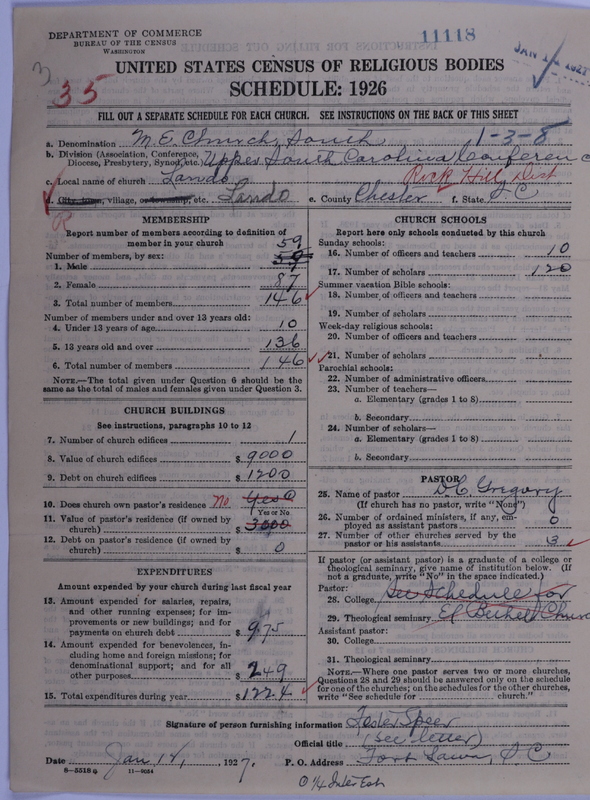 DEPARTMENT OF COMMERCE
BUREAU OF THE CENSUS
WASHINGTON
11118
JAN 1 1927
3
35
UNITED STATES CENSUS OF RELIGIOUS BODIES
SCHEDULE: 1926
FILL OUT A SEPARATE SCHEDULE FOR EACH CHURCH. SEE INSTRUCTIONS ON THE BACK OF THIS SHEET
a. Denomination M. E. Church, South 1-3-8
b. Division (Association, Conference, Diocese, Presbytery, Synod, etc. Upper South Carolina Conference
c. Local name of church Lando Rock Hill Dist
d. City, town, village, or township, etc. Lando e. County Chester f. State S C
R
MEMBERSHIP
Report number of members according to definition of member in your church
Number of members, by sex: 59
1. Male
2. Female 87
3. Total number of members 146
Number of members under and over 13 years old:
4. Under 13 years of age 10
5. 13 years old and over 136
6. Total number of members 146
NOTE.—The total given under Question 6 should be the same as the total of males and females given under Question 3.
CHURCH BUILDINGS
See instructions, paragraphs 10 to 12
7. Number of church edifices 1
8. Value of church edifices $ 9000
9. Debt on church edifices $ 1200
10. Does church own pastor's residence No Yes
Yes or No
11. Value of pastor's residence (if owned by church) $ 3000
12. Debt on pastor's residence (if owned by church) $ 0
EXPENDITURES
Amount expended by your church during last fiscal year
13. Amount expended for salaries, repairs, and other running expenses; for improvements or new buildings; and for payments on church debt $ 975
14. Amount expended for benevolences, including home and foreign missions; for denominational support; and for all other purposes $ 249
15. Total expenditures during year $ 1224
CHURCH SCHOOLS
Report here only schools conducted by this church
Sunday schools:
16. Number of officers and teachers 10
17. Number of scholars 120
Summer vacation Bible schools:
18. Number of officers and teachers
19. Number of scholars
Week-day religious schools:
20. Number of officers and teachers
21. Number of scholars
Parochial schools:
22. Number of administrative officers
23. Number of teachers—
a. Elementary (grades 1 to 8)
b. Secondary
24. Number of scholars—
a. Elementary (grades 1 to 8)
b. Secondary
PASTOR
25. Name of pastor D. C. Gregory
(If church has no pastor, write "None")
26. Number of ordained ministers, if any, employed as assistant pastors 0
27. Number of other churches served by the pastor or his assistants 3
If pastor (or assistant pastor) is a graduate of a college or theological seminary, give name of institution below. (If not a graduate, write "No" in the space indicated.)
Pastor:
28. College See Schedule for
29. Theological seminary El Bethel Church
Assistant pastor:
30. College
31. Theological seminary
NOTE.—Where one pastor serves two or more churches, Questions 28 and 29 should be answered only on the schedule for one of the churches; on the schedules for the other churches, write "See schedule for church."
Signature of person furnishing information Lester Speer
Official title (see letter)
Date Jan 14, 1927. P. O. Address Fort Lawn, S C
8-5518a 11-9034